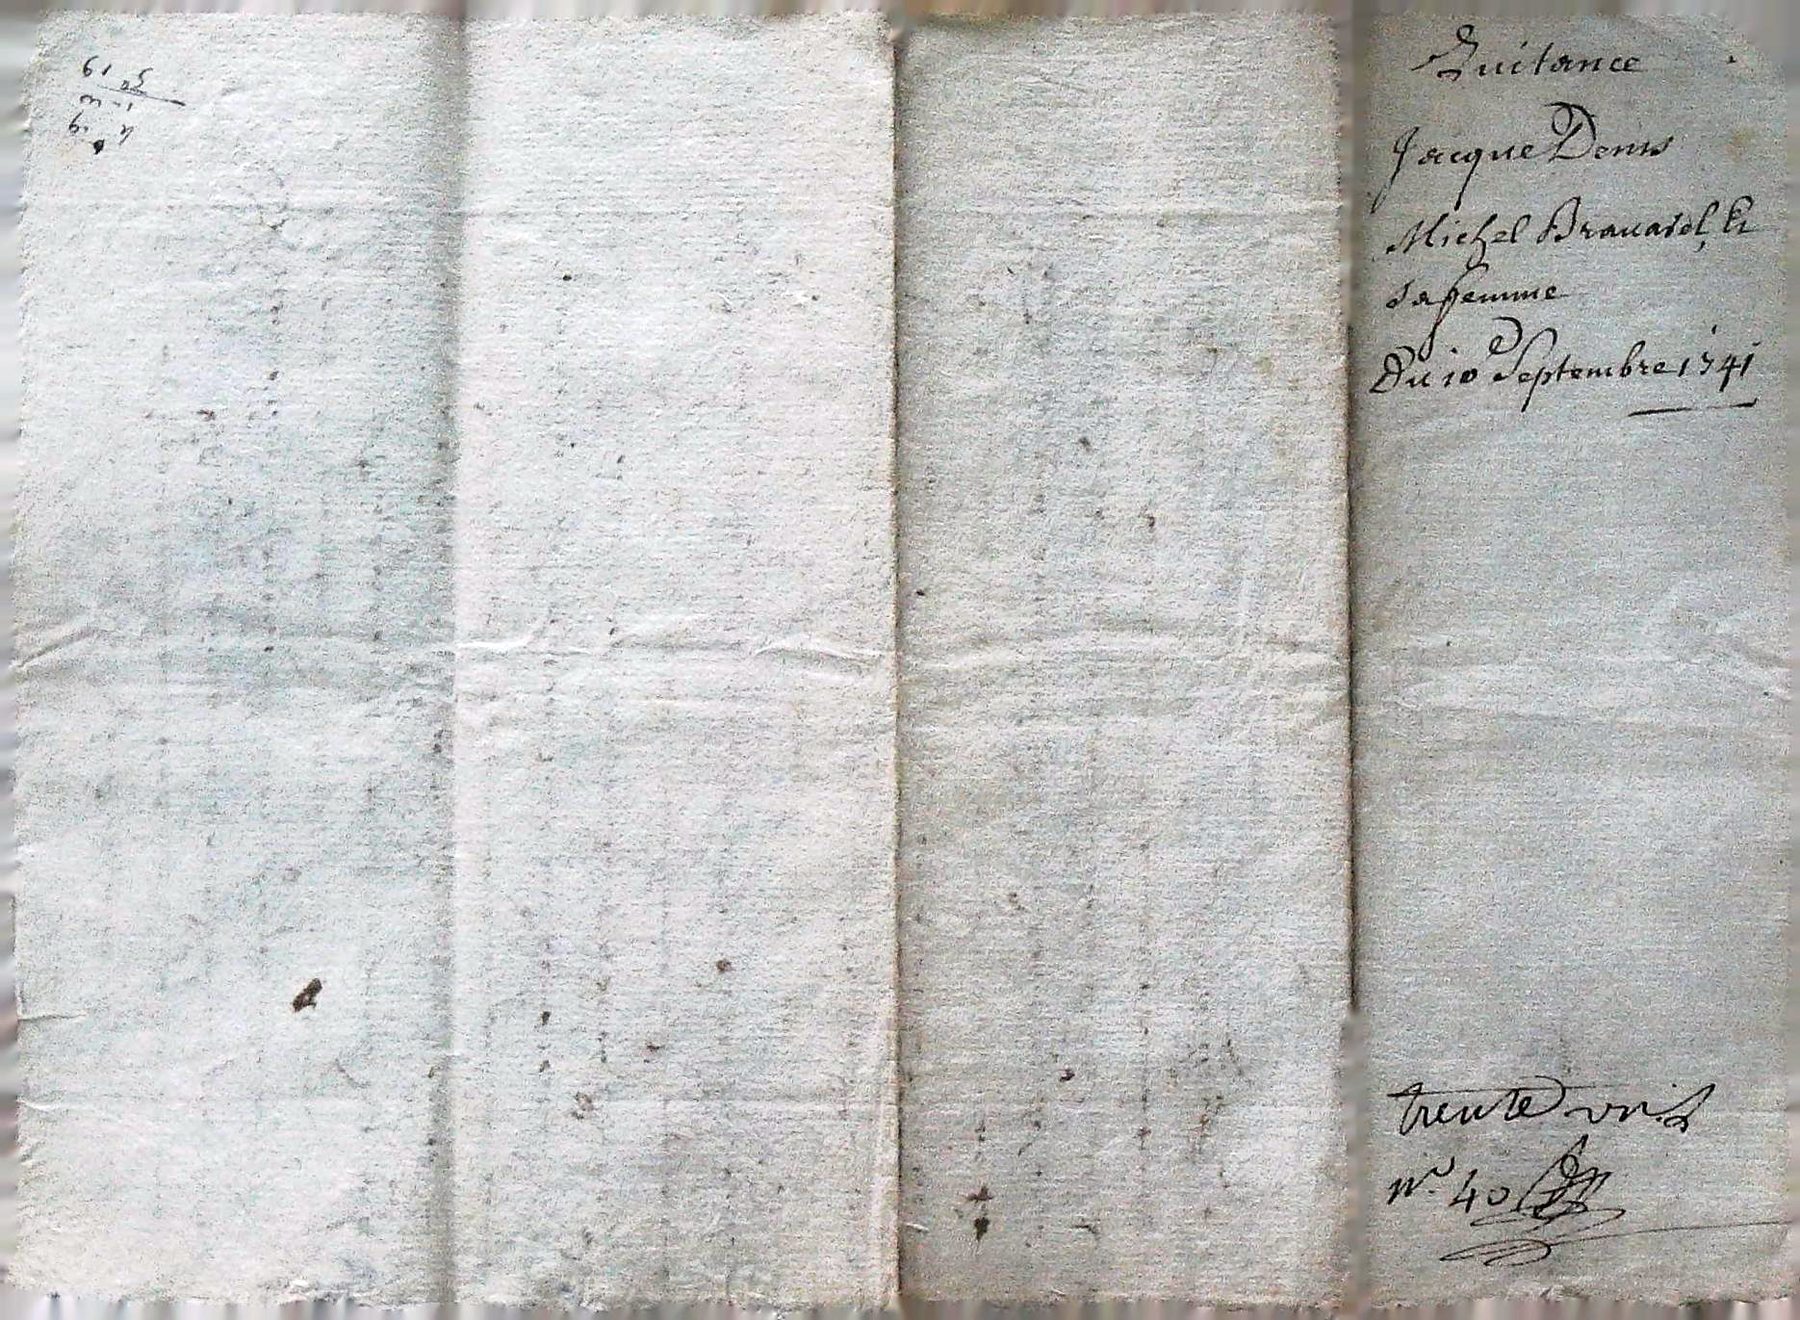 Quitance
Jacque Denis
Michel Bravard, &
sa femme
Du 10 Septembre 1741
trente
n.° 40